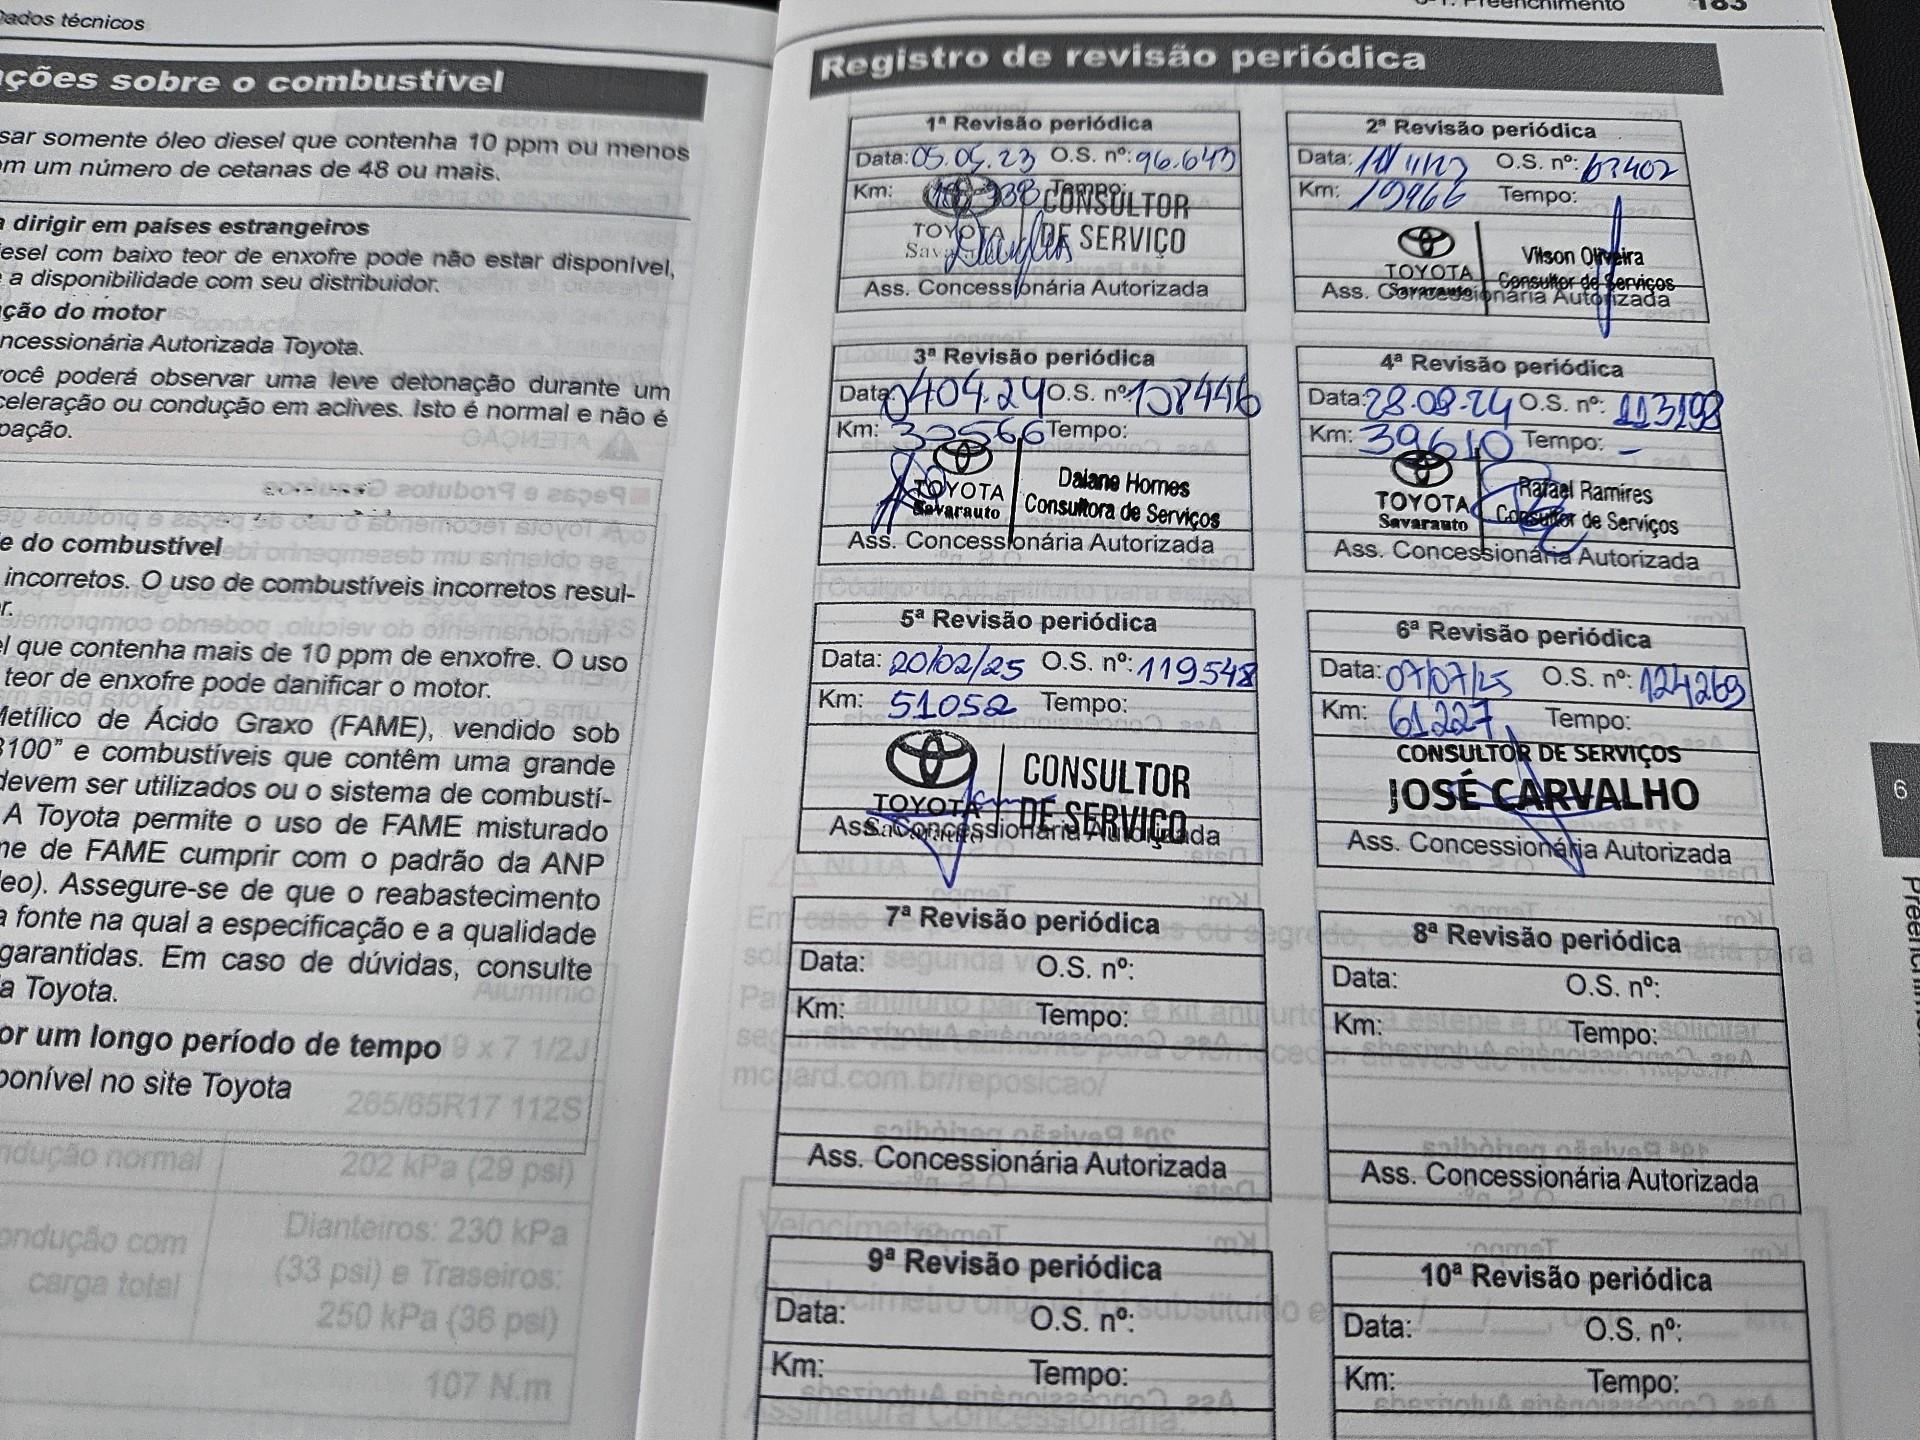 Dados técnicos
ções sobre o combustível
sar somente óleo diesel que contenha 10 ppm ou menos
m um número de cetanas de 48 ou mais.
a dirigir em países estrangeiros
esel com baixo teor de enxofre pode não estar disponível,
e a disponibilidade com seu distribuidor.
ção do motor
ncessionária Autorizada Toyota.
ocê poderá observar uma leve detonação durante um
celeração ou condução em aclives. Isto é normal e não é
pação.
e do combustível
incorretos. O uso de combustíveis incorretos resul-
r.
el que contenha mais de 10 ppm de enxofre. O uso
teor de enxofre pode danificar o motor.
Metílico de Ácido Graxo (FAME), vendido sob
B100” e combustíveis que contêm uma grande
devem ser utilizados ou o sistema de combustí-
A Toyota permite o uso de FAME misturado
me de FAME cumprir com o padrão da ANP
leo). Assegure-se de que o reabastecimento
a fonte na qual a especificação e a qualidade
garantidas. Em caso de dúvidas, consulte
a Toyota.
or um longo período de tempo
ponível no site Toyota
265/65R17 112S
ndução normal
202 kPa (29 psi)
ondução com
carga total
Dianteiros: 230 kPa
(33 psi) e Traseiros:
250 kPa (36 psi)
107 N.m
6-1. Preenchimento 183
Registro de revisão periódica
1ª Revisão periódica
Data: 05.05.23 O.S. nº: 96.643
Km: Tempo:
TOYOTA
CONSULTOR
DE SERVIÇO
Ass. Concessionária Autorizada
2ª Revisão periódica
Data: O.S. nº: 63402
Km: 19966 Tempo:
TOYOTA
Savarauto
Vilson Oliveira
Consultor de Serviços
Ass. Concessionária Autorizada
3ª Revisão periódica
Data: 0404.24 O.S. nº: 108446
Km: Tempo:
TOYOTA
Savarauto
Daiane Homes
Consultora de Serviços
Ass. Concessionária Autorizada
4ª Revisão periódica
Data: 28.08.24 O.S. nº: 113198
Km: 39610 Tempo: -
TOYOTA
Savarauto
Rafael Ramires
Consultor de Serviços
Ass. Concessionária Autorizada
5ª Revisão periódica
Data: 20/02/25 O.S. nº: 119548
Km: 51052 Tempo:
TOYOTA
CONSULTOR
DE SERVIÇO
Ass. Concessionária Autorizada
6ª Revisão periódica
Data: 07/07/25 O.S. nº: 124269
Km: 61227 Tempo:
CONSULTOR DE SERVIÇOS
JOSÉ CARVALHO
Ass. Concessionária Autorizada
7ª Revisão periódica
Data: O.S. nº:
Km: Tempo:
Ass. Concessionária Autorizada
8ª Revisão periódica
Data: O.S. nº:
Km: Tempo:
Ass. Concessionária Autorizada
9ª Revisão periódica
Data: O.S. nº:
Km: Tempo:
10ª Revisão periódica
Data: O.S. nº:
Km: Tempo:
6